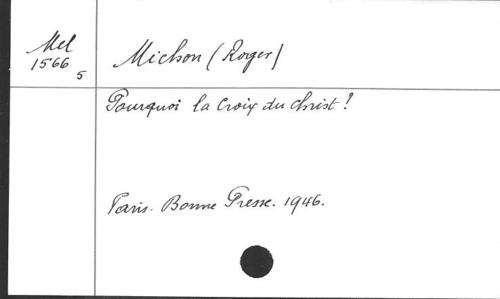 Mel
1566
5
Michon (Roger)
Pourquoi la Croix du Christ !
Paris. Bonne Presse. 1946.